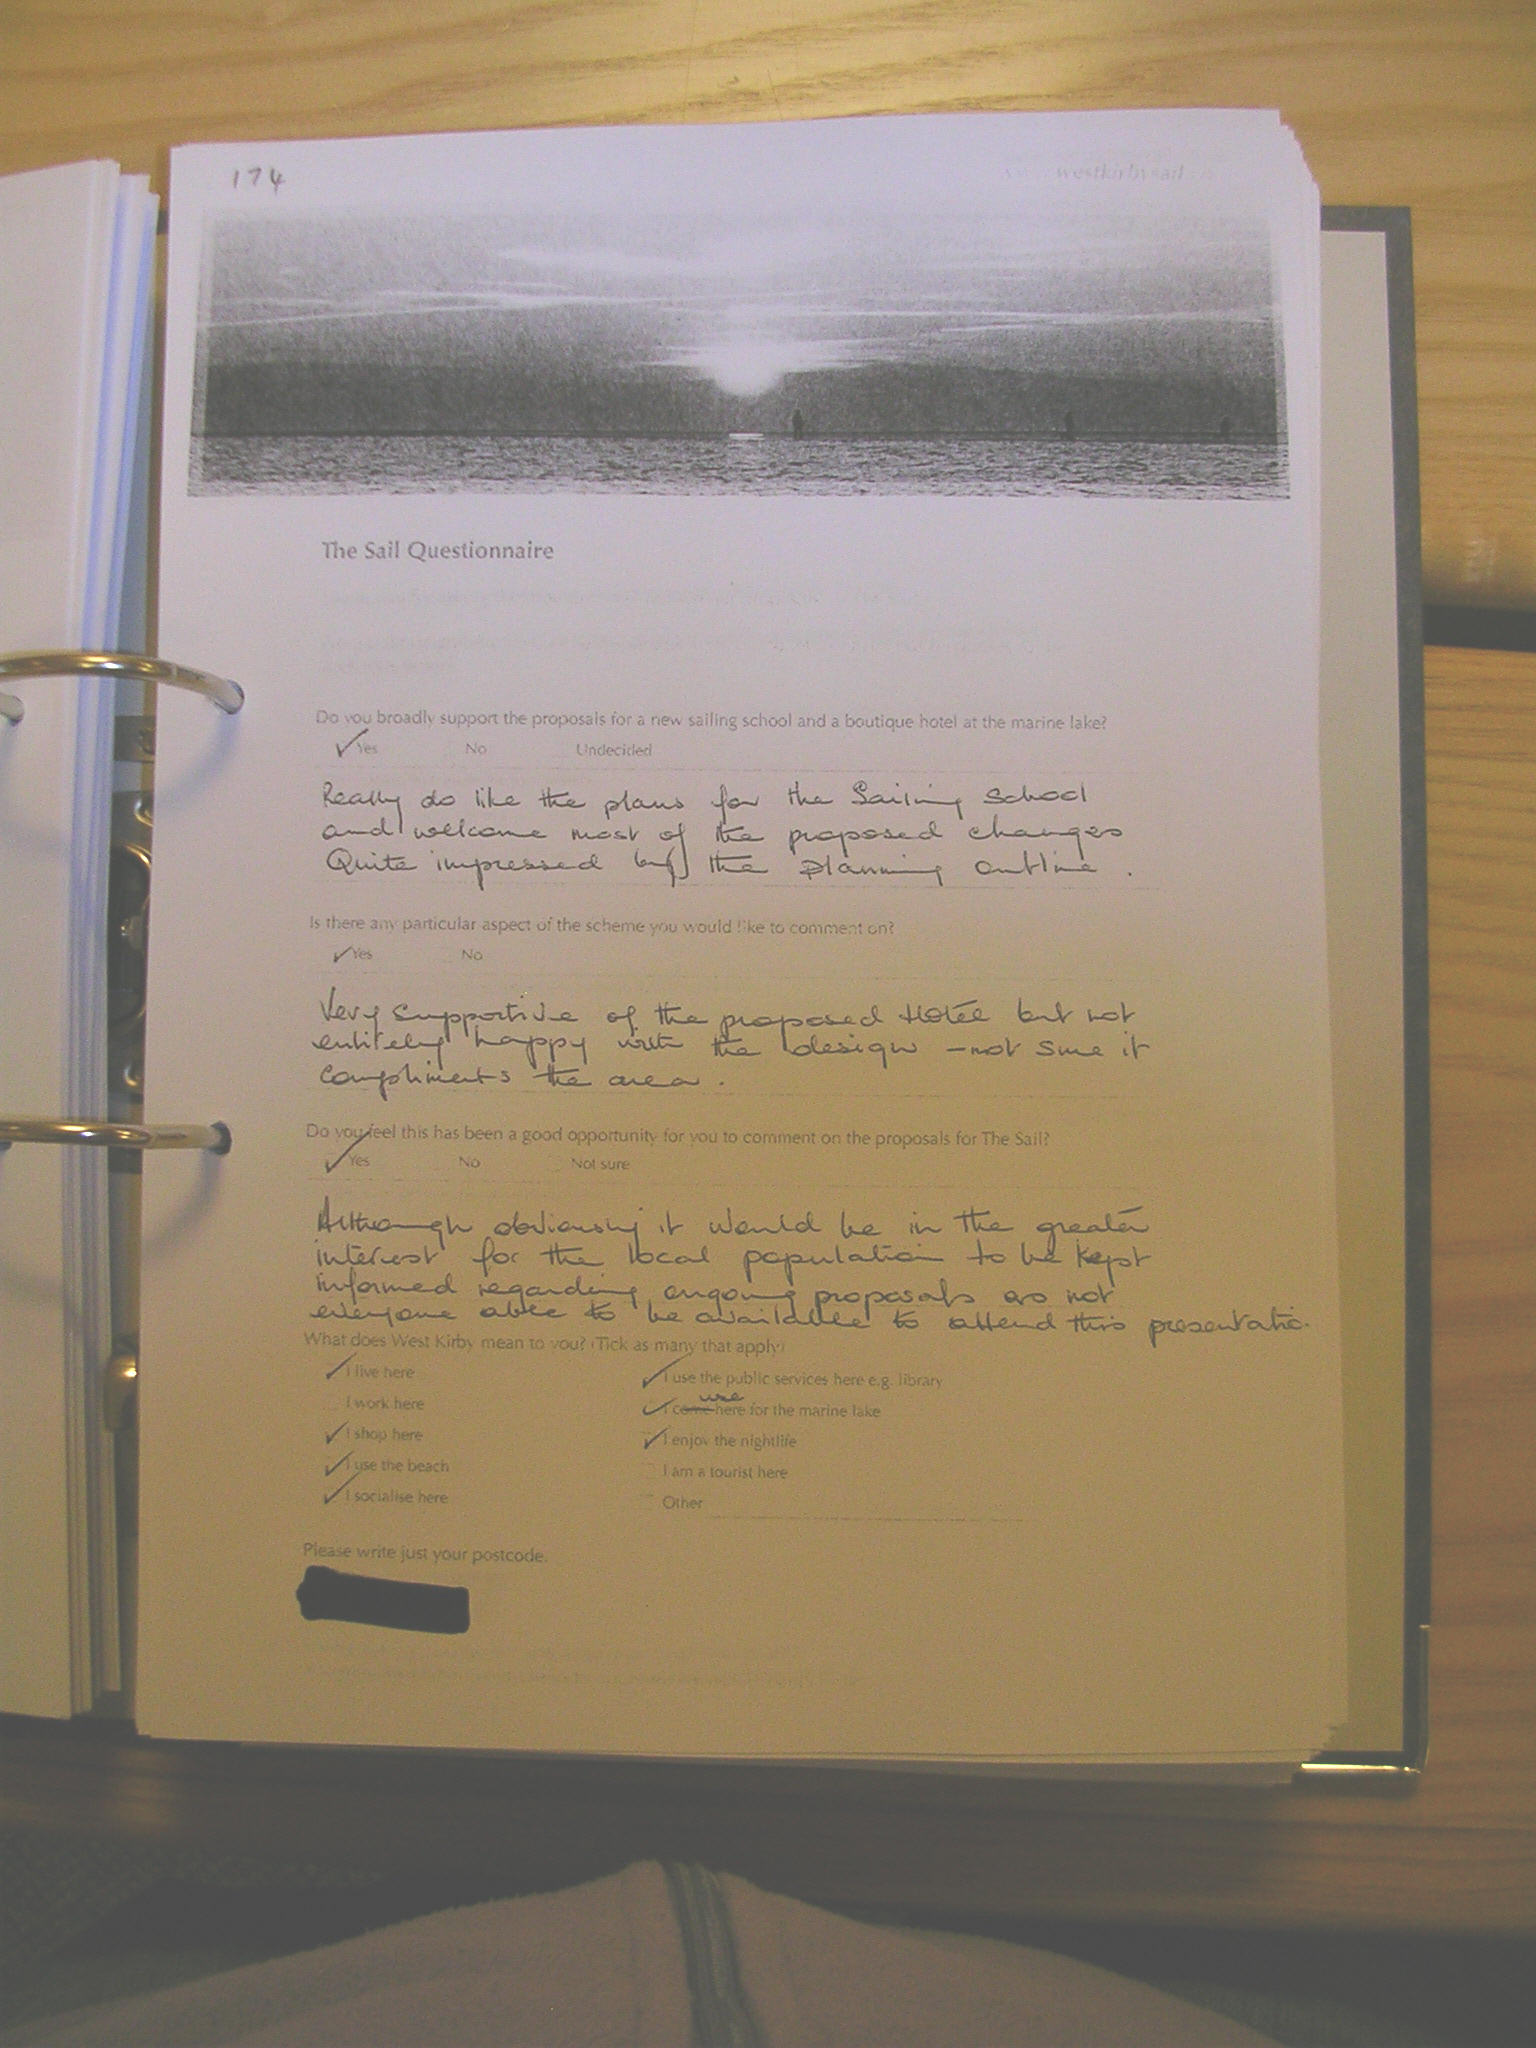 174
westkirbysail
The Sail Questionnaire
Do you broadly support the proposals for a new sailing school and a boutique hotel at the marine lake?
Yes No Undecided
Really do like the plans for the Sailing School
and welcome most of the proposed changes
Quite impressed by the Planning outline .
Is there any particular aspect of the scheme you would like to comment on?
Yes No
Very supportive of the proposed Hotel but not
entirely happy with the design - not sure it
compliments the area .
Do you feel this has been a good opportunity for you to comment on the proposals for The Sail?
Yes No Not sure
Although obviously it would be in the greater
interest for the local population to be kept
informed regarding ongoing proposals as not
everyone able to be available to attend this presentatio.
What does West Kirby mean to you? (Tick as many that apply)
I live here
I work here
I shop here
I use the beach
I socialise here
I use the public services here e.g. library
use
I come here for the marine lake
I enjoy the nightlife
I am a tourist here
Other
Please write just your postcode.